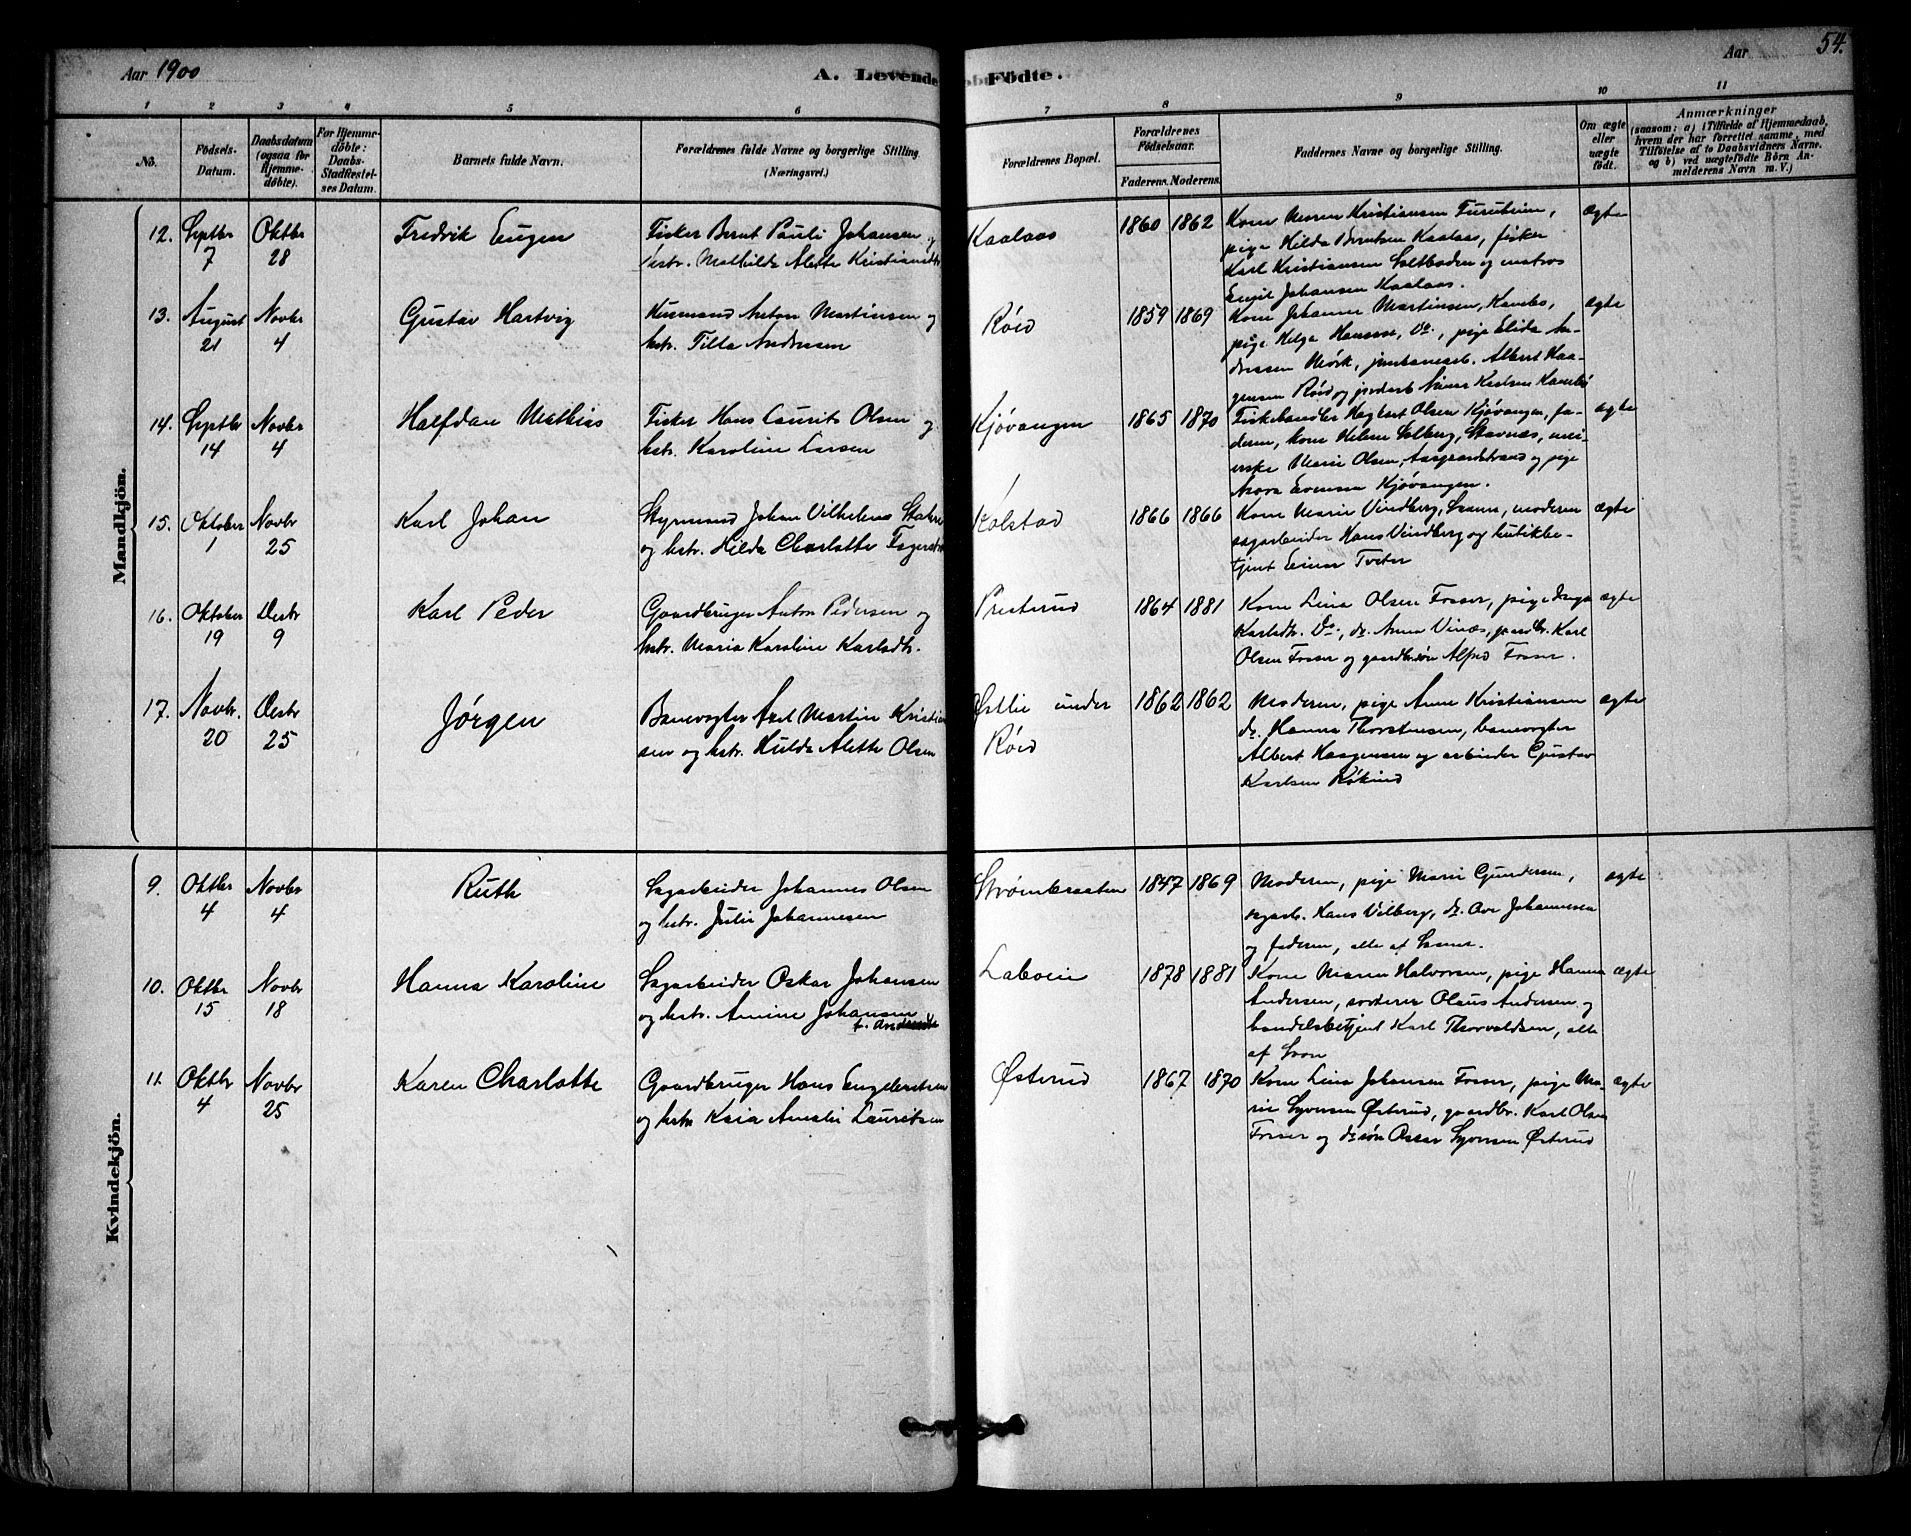 Aar 1900
A. Levende Fødte.
Aar
54.
1 2 3 4 5 6 7 8 9 10 11
No.
Fødsels-Datum.
Daabsdatum (ogsaa for Hjemmedøbte).
For Hjemmedøbte: Daabs-Stadfæstelses Datum.
Barnets fulde Navn.
Forældrenes fulde Navne og borgerlige Stilling (Næringsvei.)
Forældrenes Bopæl.
Forældrenes Fødselsaar.
Faderens. Moderens.
Faddernes Navne og borgerlige Stilling.
Om ægte eller uægte født.
Anmærkninger
(saasom: a) i Tilfælde af Hjemmedaab, hvem der har forrettet samme, med Tilføielse af to Daabsvidners Navne, og b) ved uægtefødte Børn Anmelderens Navn m. V.)
Mandkjön.
12. Septbr 7 Oktbr 28 Fredrik Eugen
Fisker Bernt Pauli Johansen og
hstr. Mathilde Alette Kristiansdtr
Kaalaas 1860 1862
Kone Maren Kristiansen Furuheim,
pige Hilda Berntsen Kaalaas, fisker
Karl Kristiansen Saltboden og matros
Emil Johansen Kaalaas.
ægte
13. August 21 Novbr 4 Gustav Hartvig
Husmand Anton Martinsen og
hstr. Tilla Andersen
Røid 1859 1869
Kone Johanne Martinsen, Kambo,
pige Helga Hansen, Do., pige Elida An-
dresen Mörk, jernbanearb. Albert Haa-
gensen Røid og jordarb. Karlsen Kambo
ægte
14. Septbr 14 Novbr 4 Halfdan Mathias
Fisker Hans Laurits Olsen og
hstr. Karoline Larsen
Kjøvangen 1865 1870
Fiskehandler Hagbart Olsen Kjøvangen, fa-
deren, kone Helene Solberg, Stavnæs, mei-
erske Marie Olsen, Aasgaardstrand og pige
Evensen Kjøvangen.
ægte
15. Oktober 1 Novbr 25 Karl Johan
Styrmand Johan Vilhelms
og hstr. Hilda Charlotte
Kolstad 1866 1866
Kone Marie Vindberg, Soner, moderen
sagarbeider Hans Vindberg og butikbe-
tjent Einar Tveter
ægte
16. Oktober 19 Desbr 9 Karl Peder
Gaardbruger Anton Pedersen og
hstr. Maria Karoline Karlsdtr.
Presterud 1864 1881
Kone Lina Olsen Fosser, pige Inga
Karlsdtr. Do., do. Anna Vinæs, gaardbr. Karl
Olsen Fosser og gaardbr.søn Alfred Fosser.
ægte
17. Novbr. 20 Desbr 25 Jørgen
Banevogter Axel Martin Kristian-
sen og hstr. Hulda Alette Olsen
Østlie under
Røid
1862 1862
Moderen, pige Anne Kristiansen
do. Hanna Thorstensen, banevogter
Albert Haagensen og arbeider Gustav
Karlsen Røkind
ægte
Kvindekjön.
9. Oktbr 4 Novbr 4 Ruth
Sagarbeider Johannes Olsen
og hstr. Julie Johannesen
Strømbraaten 1847 1869
Moderen, pige Marie Gundersen,
sagarb. Hans Vilberg, do. Ove Johannesen
og faderen, alle af Soner.
ægte
10. Oktbr 15 Novbr 18 Hanna Karoline
Sagarbeider Oskar Johansen
og hstr. Amine Johansen
f. Andersen
Labo 1878 1881
Kone Maren Halvorsen, pige Hanna
Andersen, sorterer Olaus Andersen og
handelsbetjent Karl Thorvaldsen, alle
af Soon
ægte
11. Oktbr 4 Novbr 25 Karen Charlotte
Gaardbruger Hans Engebretsen
og hstr Kaia Amalie Lauritsen
Østerud 1867 1870
Kone Lina Johansen Fosser, pige Ma-
rie Syversen Østerud, gaardbr. Karl Olsen
Fosser og do søn Oscar Syversen Østerud
ægte